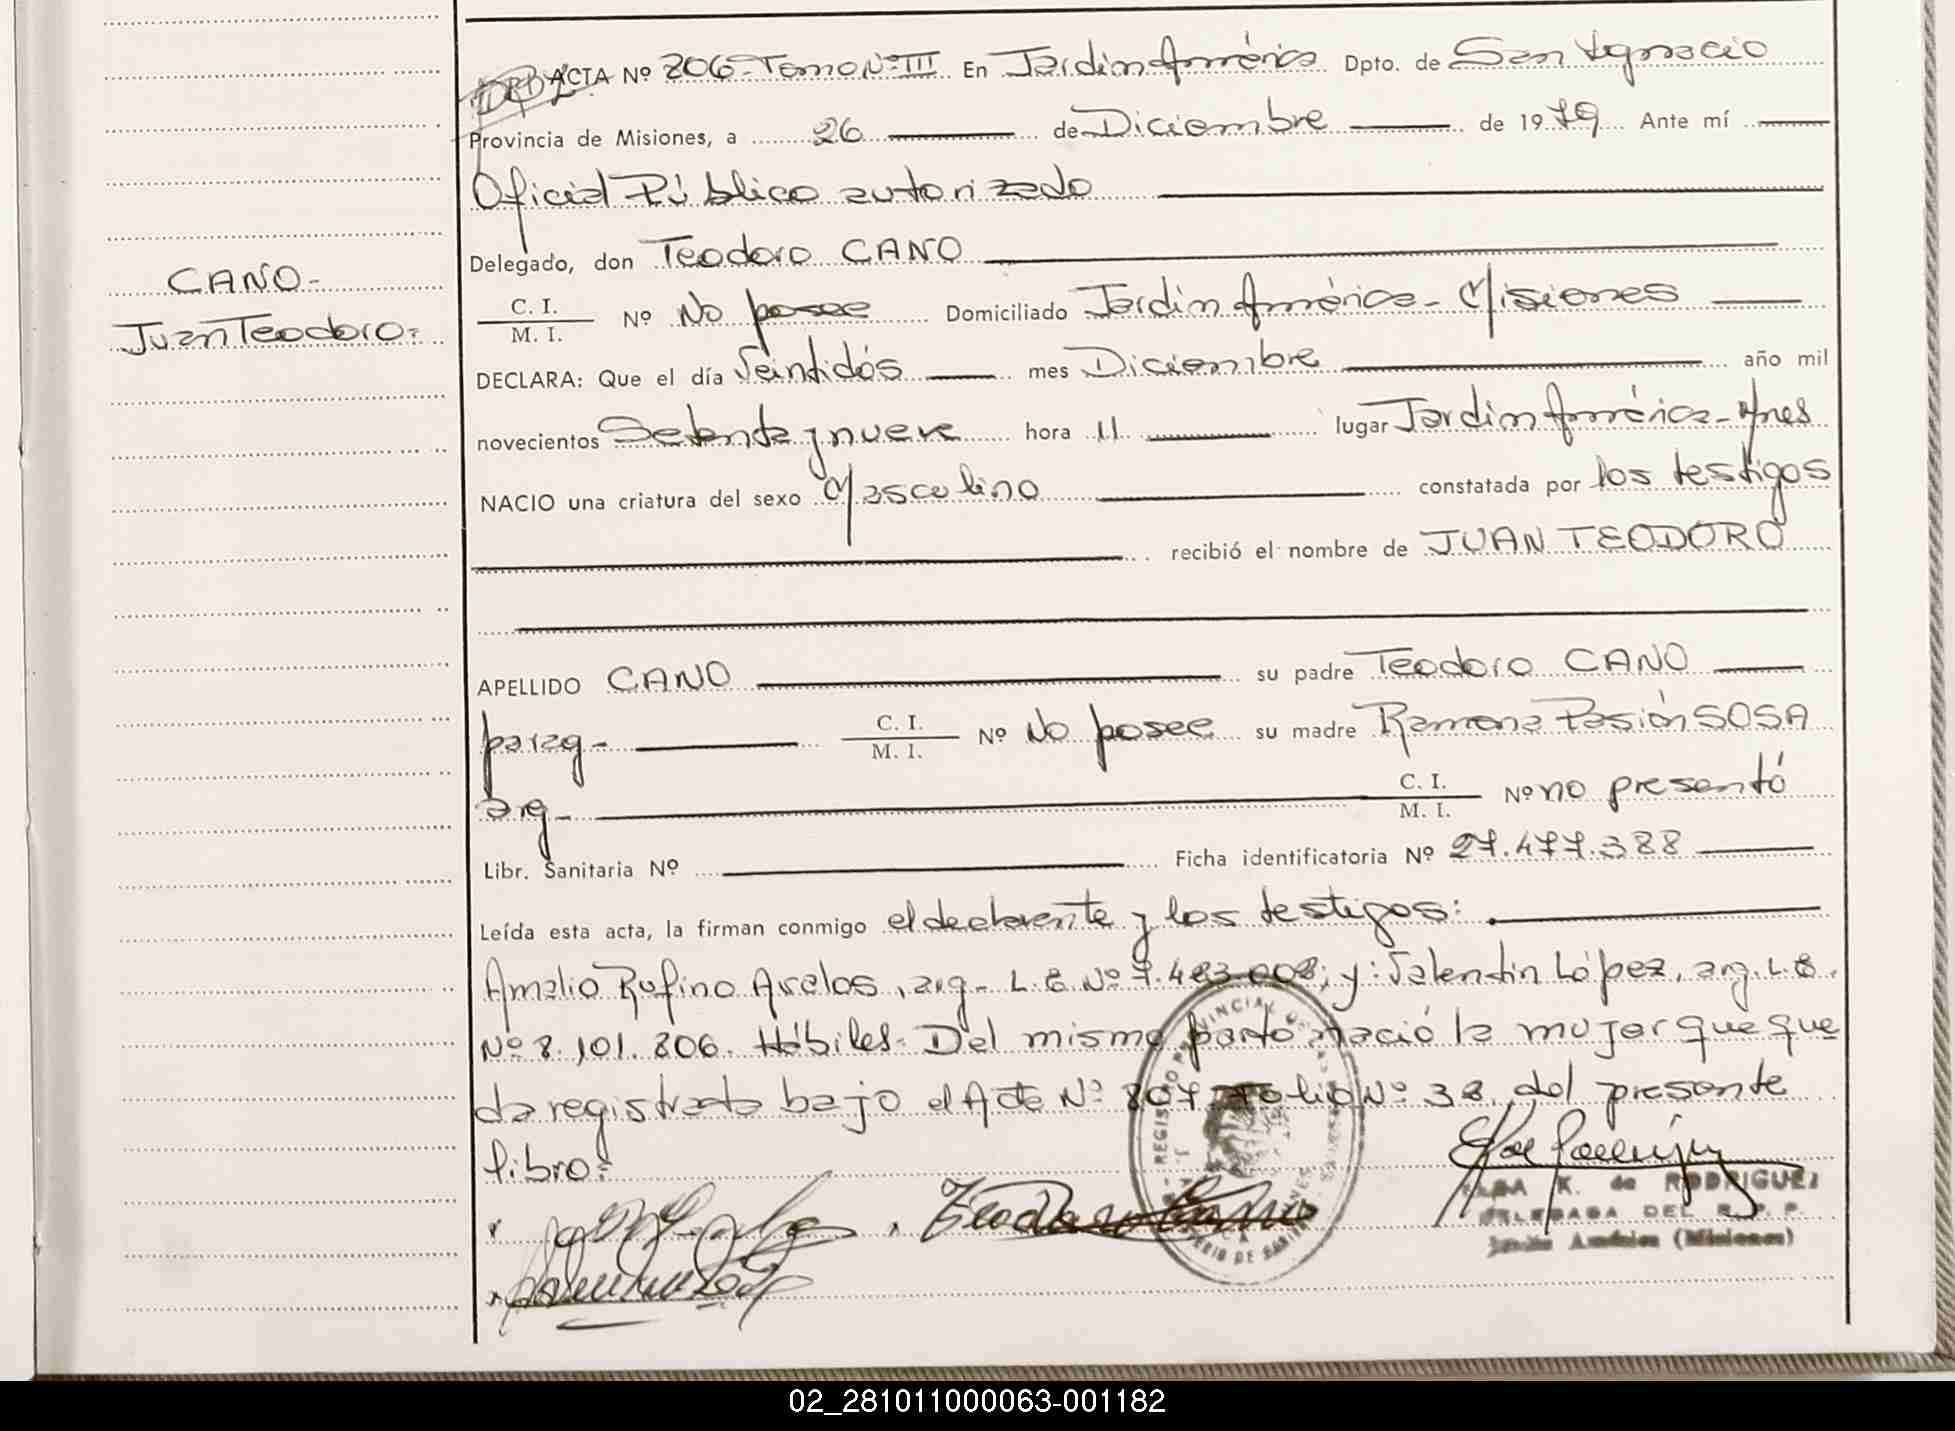 ACTA Nº 806 - Tomo Nº III En Jardin América Dpto. de San Ignacio
Provincia de Misiones, a 26 de Diciembre de 1979 Ante mí
Oficial Público autorizado
Delegado, don Teodoro CANO
CANO-
C. I.
M. I. Nº No posee Domiciliado Jardin América - Misiones
Juan Teodoro=
DECLARA: Que el día Veintidós mes Diciembre año mil
novecientos Setenta y nueve hora 11 lugar Jardin América - Mnes
NACIO una criatura del sexo Masculino constatada por los testigos
recibió el nombre de JUAN TEODORO
APELLIDO CANO su padre Teodoro CANO
parag - C. I.
M. I. Nº No posee su madre Ramona Pasión SOSA
arg - C. I.
M. I. Nº no presentó
Libr. Sanitaria Nº Ficha identificatoria Nº 27.477.388
Leída esta acta, la firman conmigo el declarante y los testigos:
Amalio Rufino Avalos, arg - L.E. Nº 7.483.008; y: Valentin López, arg. L.E.
Nº 8.101.806. Hábiles - Del mismo parto nació la mujer que que
da registrada bajo el Acta Nº 807 - Folio Nº 38 del presente
libro=
Teodoro Cano
ELBA K. de RODRIGUEZ
DELEGADA DEL R. P. P.
Jardin América (Misiones)
02_281011000063-001182